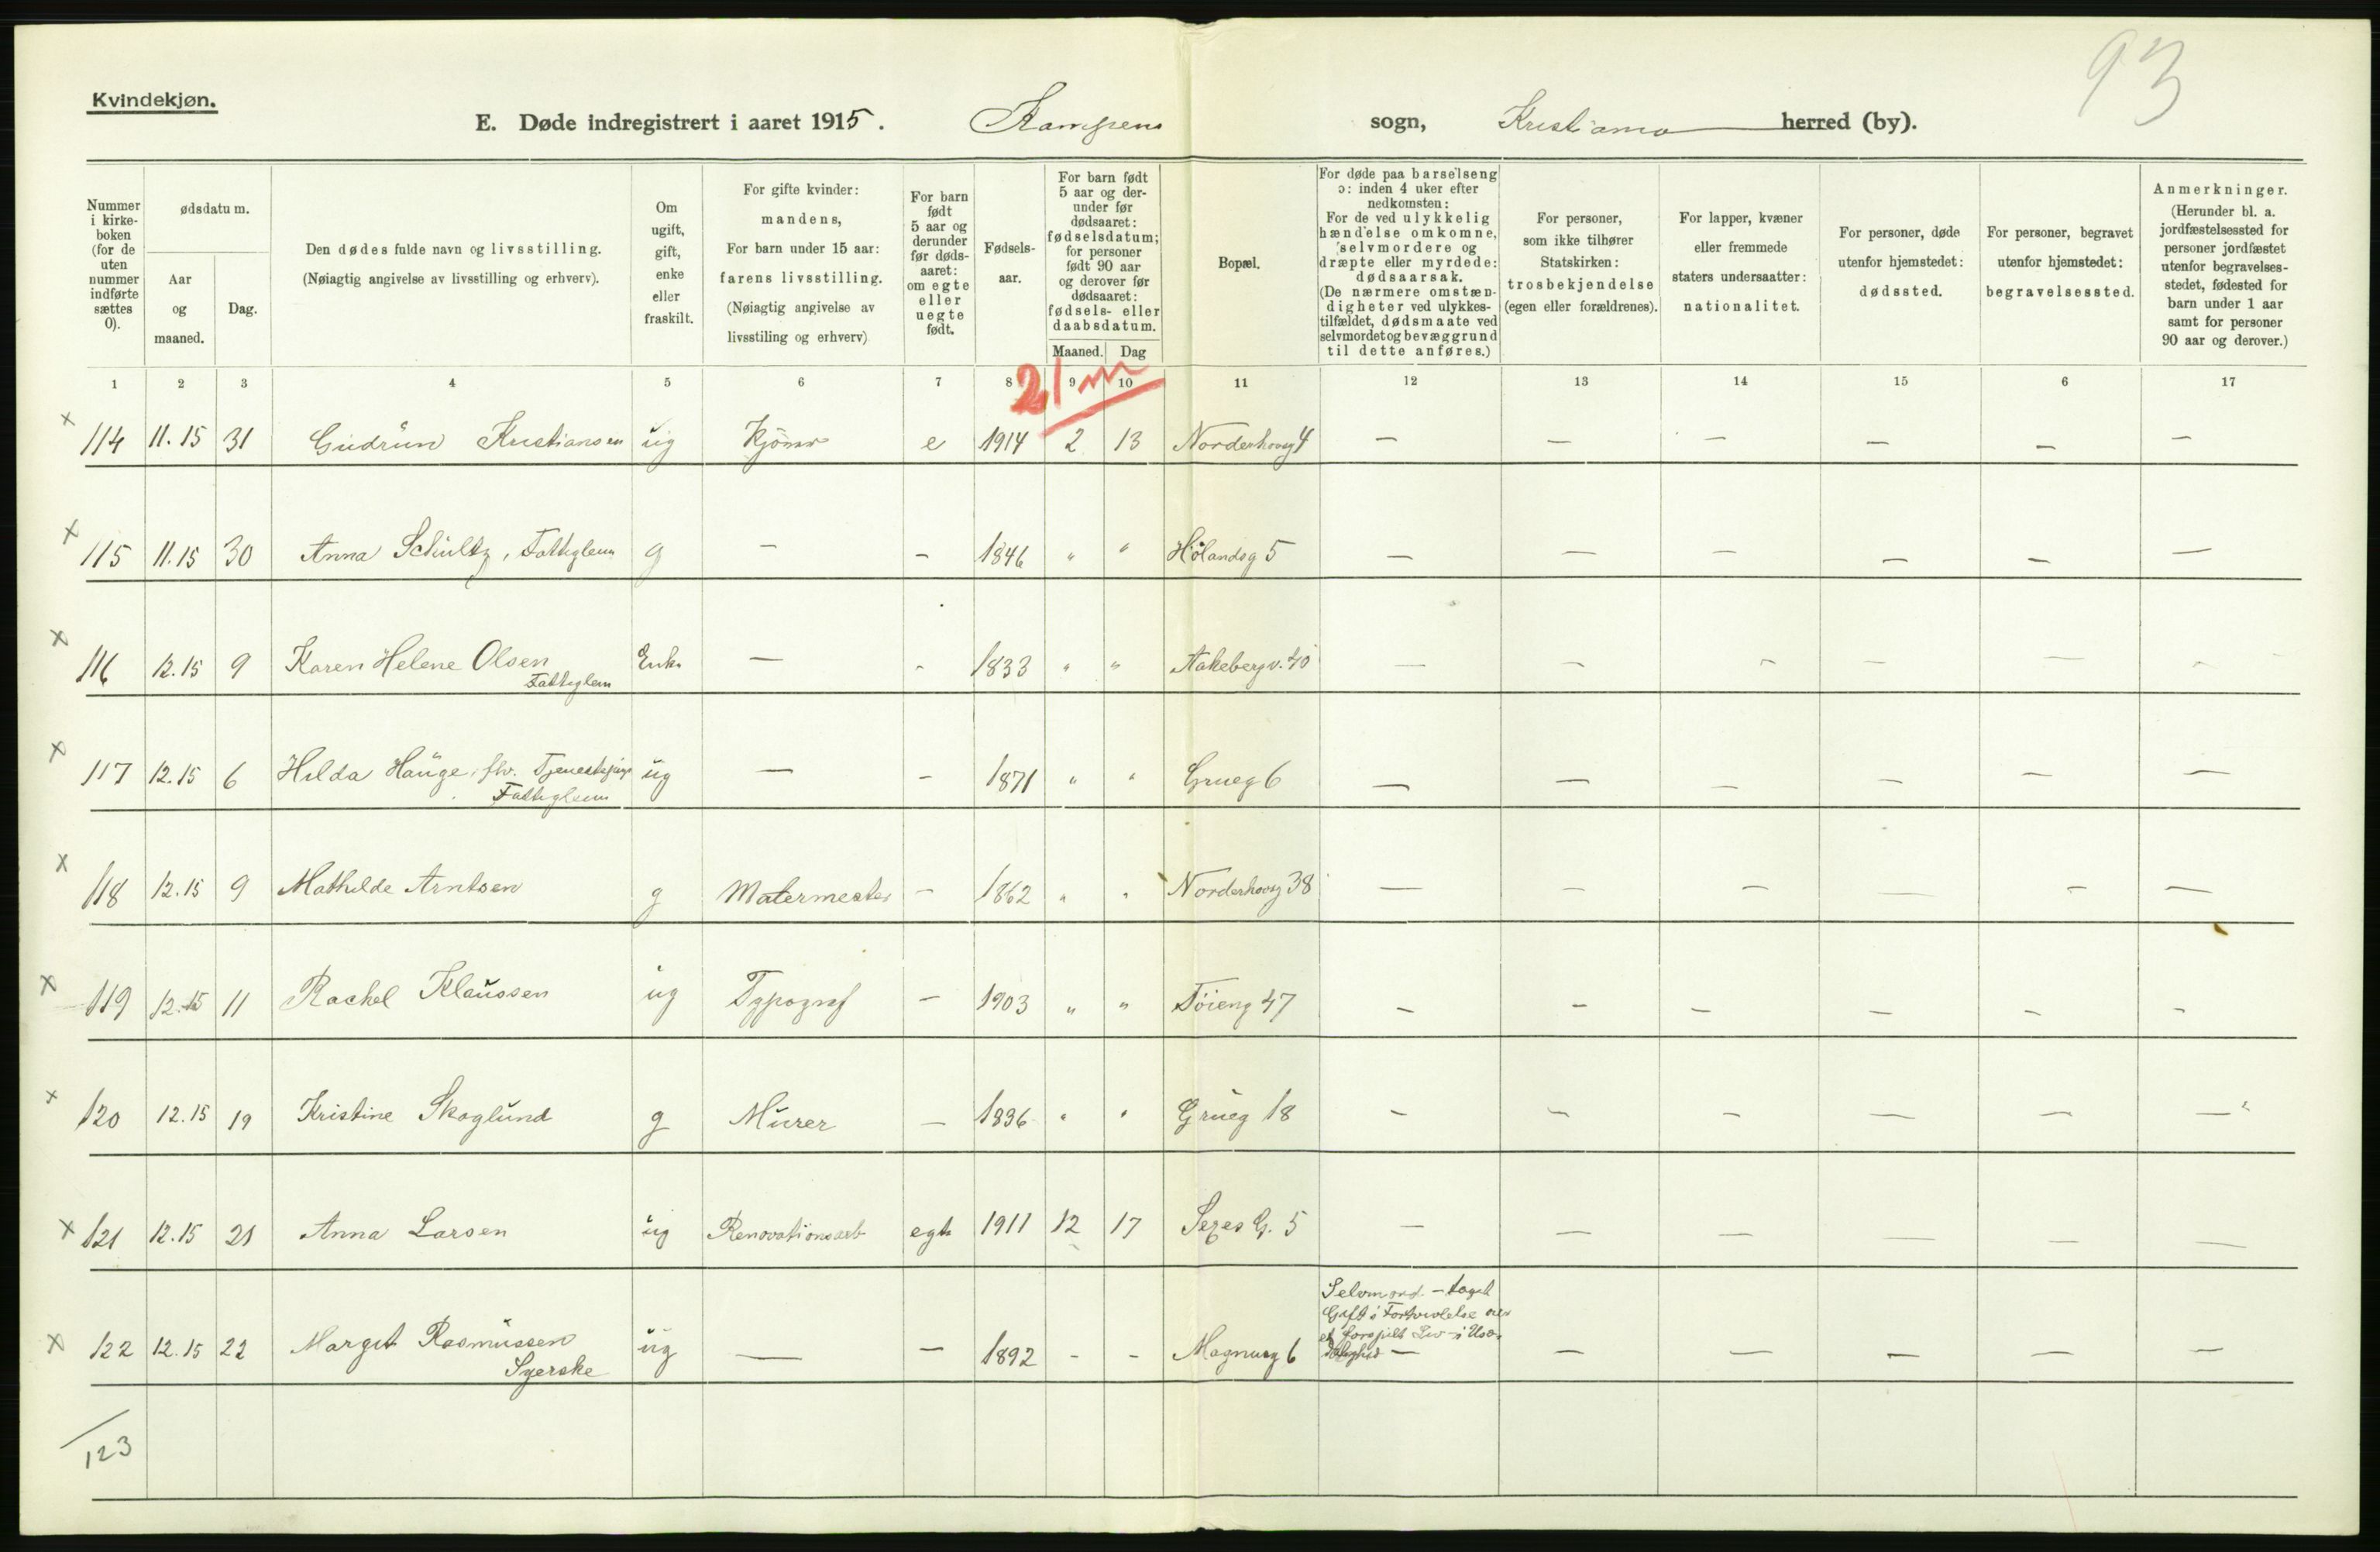 93
Kvindekjøn.
E. Døde indregistrert i aaret 1915. Kampens sogn, Kristiania herred (by).
Nummer i kirke-boken (for de uten nummer indførte sættes 0).
ødsdatum.
Aar og maaned.
Dag.
Den dødes fulde navn og livsstilling. (Nøiagtig angivelse av livsstilling og erhverv).
Om ugift, gift, enke eller fraskilt.
For gifte kvinder: mandens, For barn under 15 aar: farens livsstilling. (Nøiagtig angivelse av livsstiling og erhverv)
For barn født 5 aar og derunder før døds-aaret: om egte eller uegte født.
Fødsels-aar.
For barn født 5 aar og der-under før dødsaaret: fødselsdatum; for personer født 90 aar og derover før dødsaaret: fødsels- eller daabsdatum.
Maaned. Dag
Bopæl.
For døde paa barselseng ɔ: inden 4 uker efter nedkomsten: For de ved ulykkelig hændelse omkomne, selvmordere og dræpte eller myrdede: dødsaarsak. (De nærmere omstæn-digheter ved ulykkes-tilfældet, dødsmaate ved selvmordet og bevæggrund til dette anføres.)
For personer, som ikke tilhører Statskirken: trosbekjendelse (egen eller forældrenes).
For lapper, kvæner eller fremmede staters undersaatter: nationalitet.
For personer, døde utenfor hjemstedet: dødssted.
For personer, begravet utenfor hjemstedet: begravelsessted.
Anmerkninger. (Herunder bl. a. jordfæstelsessted for personer jordfæstet utenfor begravelses-stedet, fødested for barn under 1 aar samt for personer 90 aar og derover.)
1 2 3 4 5 6 7 8 9 10 11 12 13 14 15 6 17
21 m
× 114 11.15 31 Gudrun Kristiansen ug e 1914 2 13 Norderhovg 4 — — — — — —
× 115 11.15 30 Anna Schultz, Fattiglem g — — 1846 " " Hölandsg 5 — — — — — —
× 116 12.15 9 Karen Helene Olsen Enke — - 1833 " " Aakebergv. 40 — — — — — -
Fattiglem
× 117 12.15 6 Hilda Hauge, fhv. Tjenestepige ug — — 1871 " " Grueg 6 — — — — — —
Fattiglem
× 118 12.15 9 Mathilde Arntsen g Malermester — 1862 " " Norderhovg 38 — — — — — —
× 119 12.15 11 Rachel Klaussen ug Typograf — 1903 " " Töieng 47 — — — — — —
× 120 12.15 19 Kristine Skoglund g Murer — 1836 " " Grueg 18 — — — — — —
× 121 12.15 21 Anna Larsen ug Renovationsarb egte 1911 12 17 G. 5 — — — — — —
× 122 12.15 22 Margit Rasmussen ug — — 1892 - - Magnusg 6 Selvmord. — taget
Gift i Fortvivlelse over
et forspilt Liv i Usæ-
delighed — — — — — —
Syerske
123